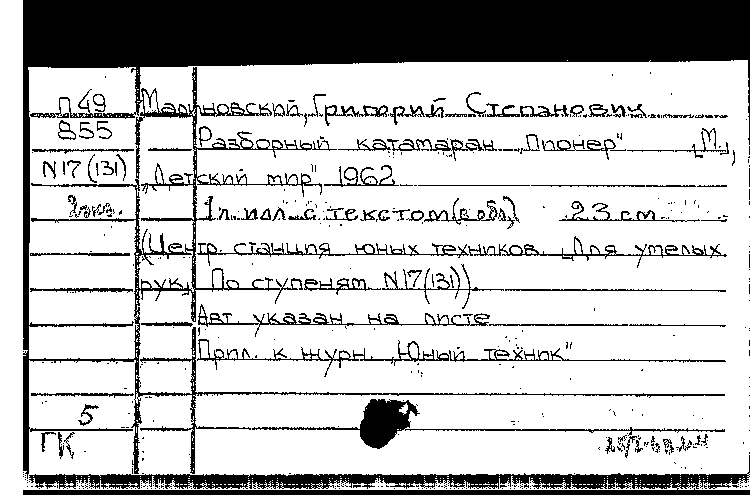 П49 Малиновский, Григорий Степанович
855 Разборный катамаран „Пионер" [М.],
N17(131) „Детский мир", 1962
2 экз. 1 л. илл. с текстом (в обл.) 23 см.
(Центр. станция юных техников. [Для умелых
рук] По ступеням N17(131)).
Авт. указан. на листе
Прил. к журн. „Юный техник"
5
ГК